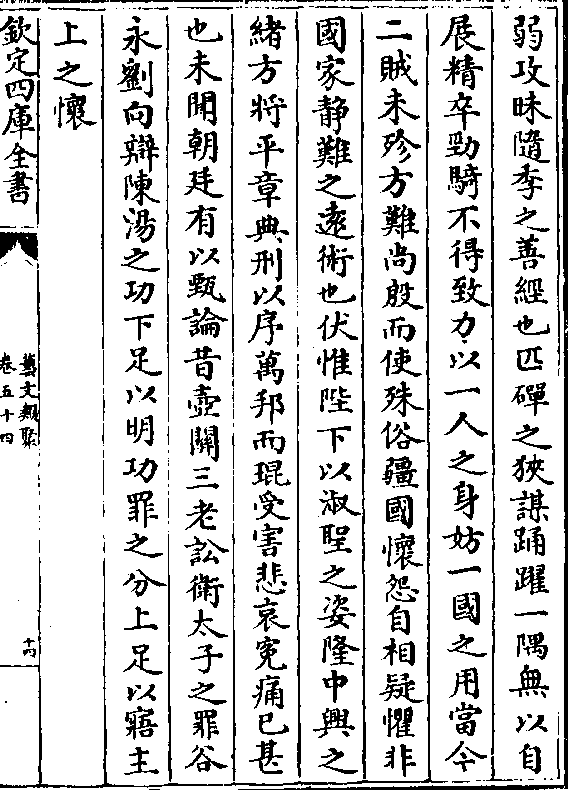 弱攻昧隨季之善經也匹磾之狹謀踊躍一隅無以自
展精卒勁騎不得致力以一人之身妨一國之用當今
二賊未殄方難尚殷而使殊俗疆國懷怨自相疑懼非
國家靜難之遠術也伏惟陛下以淑聖之姿隆中興之
緒方將平章典刑以序萬邦而琨受害悲哀寃痛已甚
也未聞朝廷有以甄論昔壺關三老訟衛太子之罪谷
永劉向辯陳湯之功下足以明功罪之分上足以寤主
上之懷
欽定四庫全書
藝文類聚
卷五十四
十四